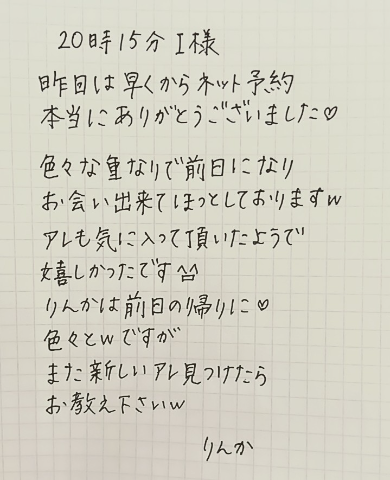 20時15分 I様
昨日は早くからネット予約
本当にありがとうございました♡
色々な重なりで前日になり
お会い出来てほっとしておりますw
アレも気に入って頂いたようで
嬉しかったです^^
りんかは前日の帰りに♡
色々とwですが
また新しいアレ見つけたら
お教え下さいw
りんか